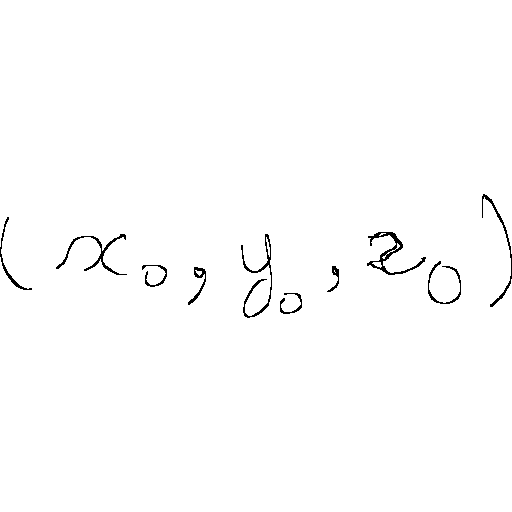 (x₀, y₀, z₀)